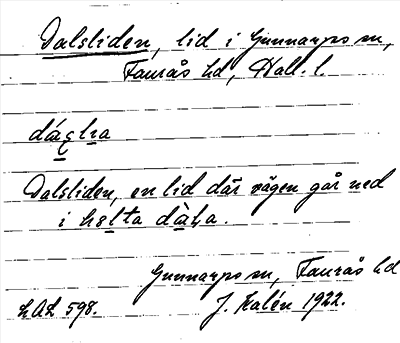 Dalsliden, lid i Gunnarps sn,
Faurås hd, Hall. l.
Dalsliden, en lid där vägen går ned
i
Gunnarps sn, Faurås hd
LAL 598. J. Kalén 1922.